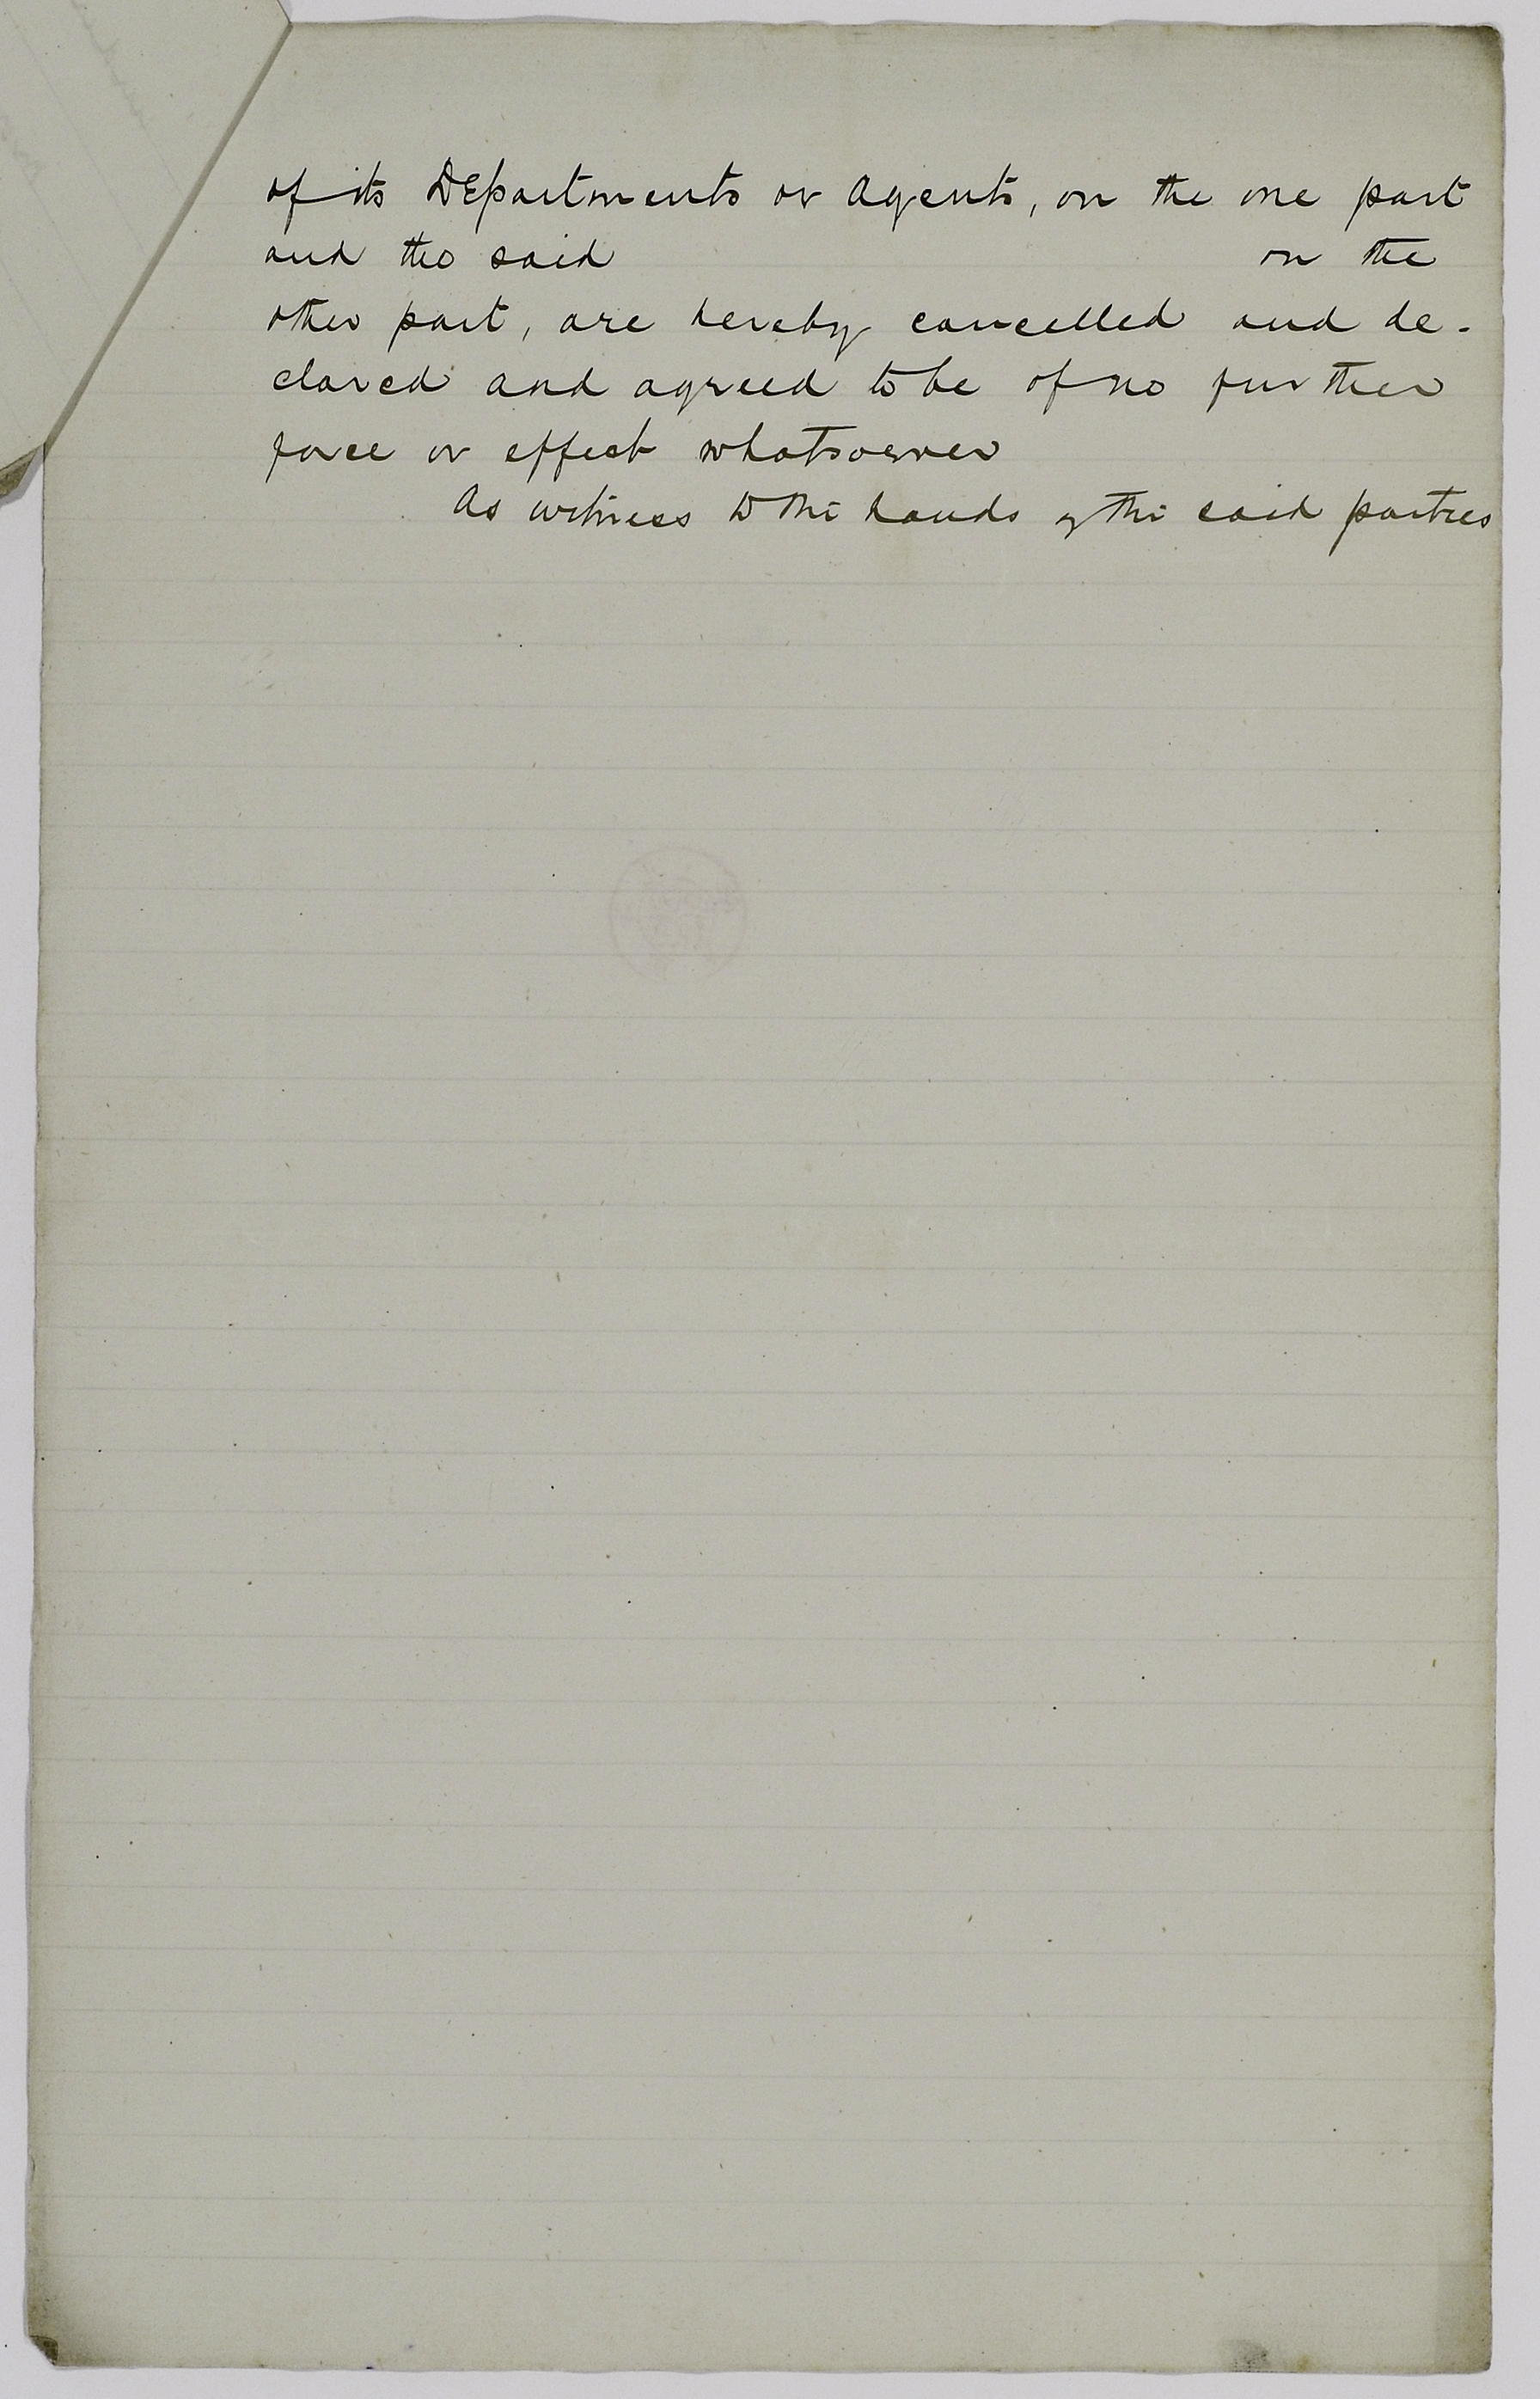 of its Departments or Agents, on the one part
and the said on the
other part, are hereby cancelled and de-
clared and agreed to be of no further
force or effect whatsoever
As witness to the hands of the said parties